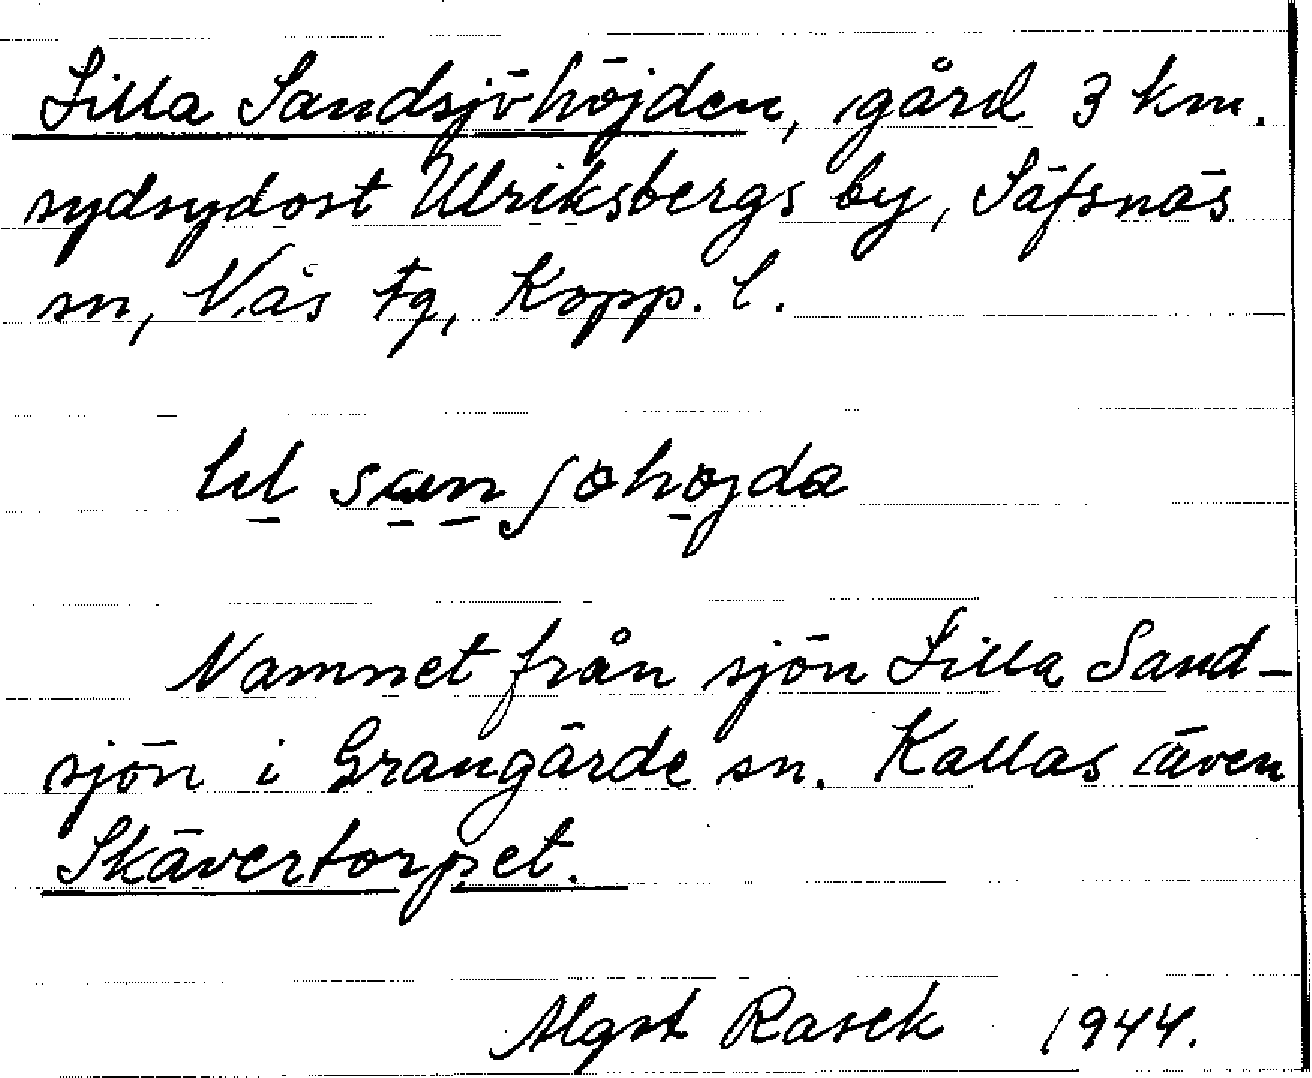 Lilla Sandsjöhöjden, gård 3 km.
sydsydost Ulriksbergs by, Säfsnäs
sn, Nås tg, Kopp. l.
lil san ʃöhöjda
Namnet från sjön Lilla Sand-
sjön i Grangärde sn. Kallas även
Skävertorpet.
Algot Rasck 1944.